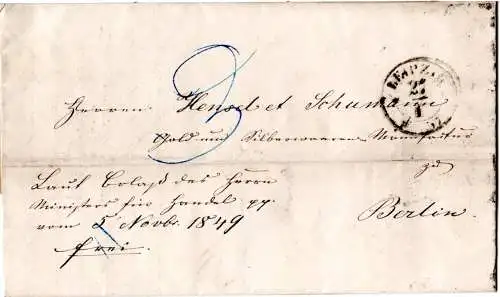 3
LEIPZIG
Herren Hensel et Schumann
Gold und Silberwaaren Manufactur
zu
Laut Erlaß des Herrn
Ministers für Handel pp.
vom 5 Novbr. 1849
Berlin.
frei.